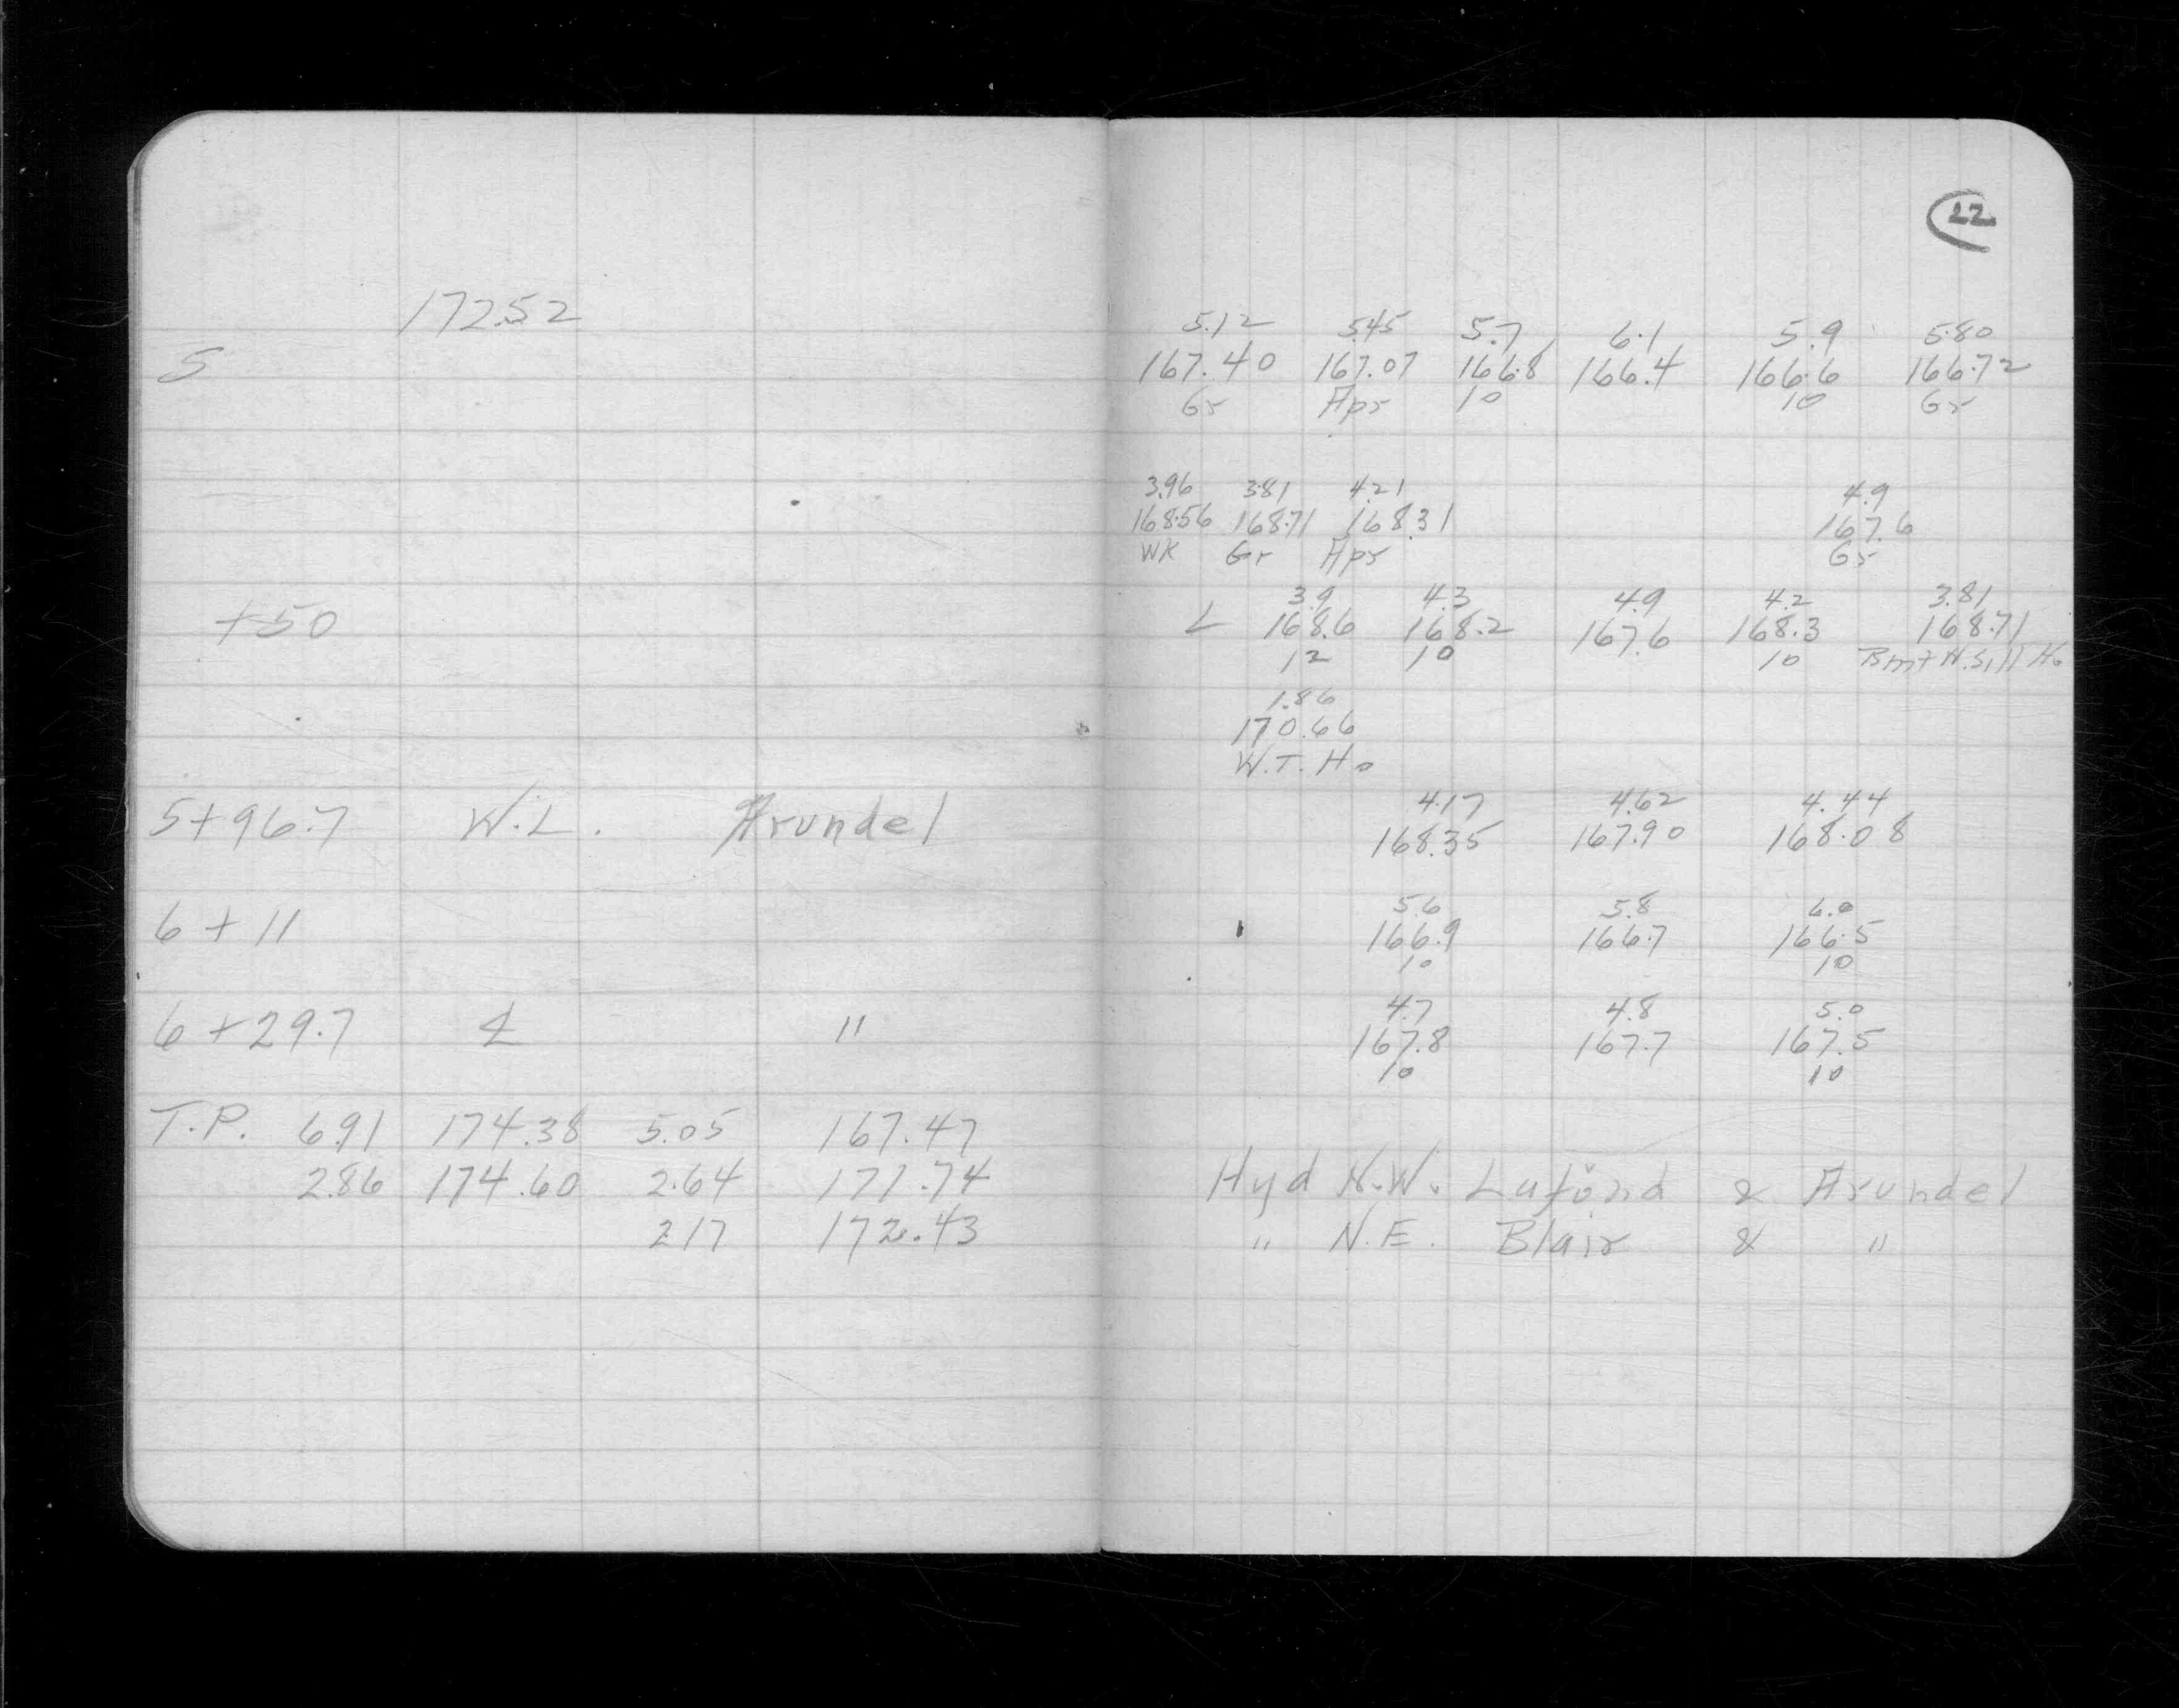 172.52
5
+50
5+96.7 W.L. Arundel
6 + 11
6 + 29.7 ℄ "
T.P. 6.91 174.38 5.05 167.47
2.86 174.60 2.64 171.74
2.17 172.43
22
5.12 5.45 5.7 6.1 5.9 5.80
167.40 167.07 166.8 166.4 166.6 166.72
Gr Apr 10 10 Gr
3.96 3.81 4.21 4.9
168.56 168.71 168.31 167.6
WK Gr Apr Gr
3.9 4.3 4.9 4.2 3.81
L 168.6 168.2 167.6 168.3 168.71
12 10 10 Bmt W.Sill Ho
1.86
170.66
W.T. Ho
4.17 4.62 4.44
168.35 167.90 168.08
5.6 5.8 6.0
166.9 166.7 166.5
10 10
4.7 4.8 5.0
167.8 167.7 167.5
10 10
Hyd N.W. Lafond & Arundel
" N.E. Blair & "